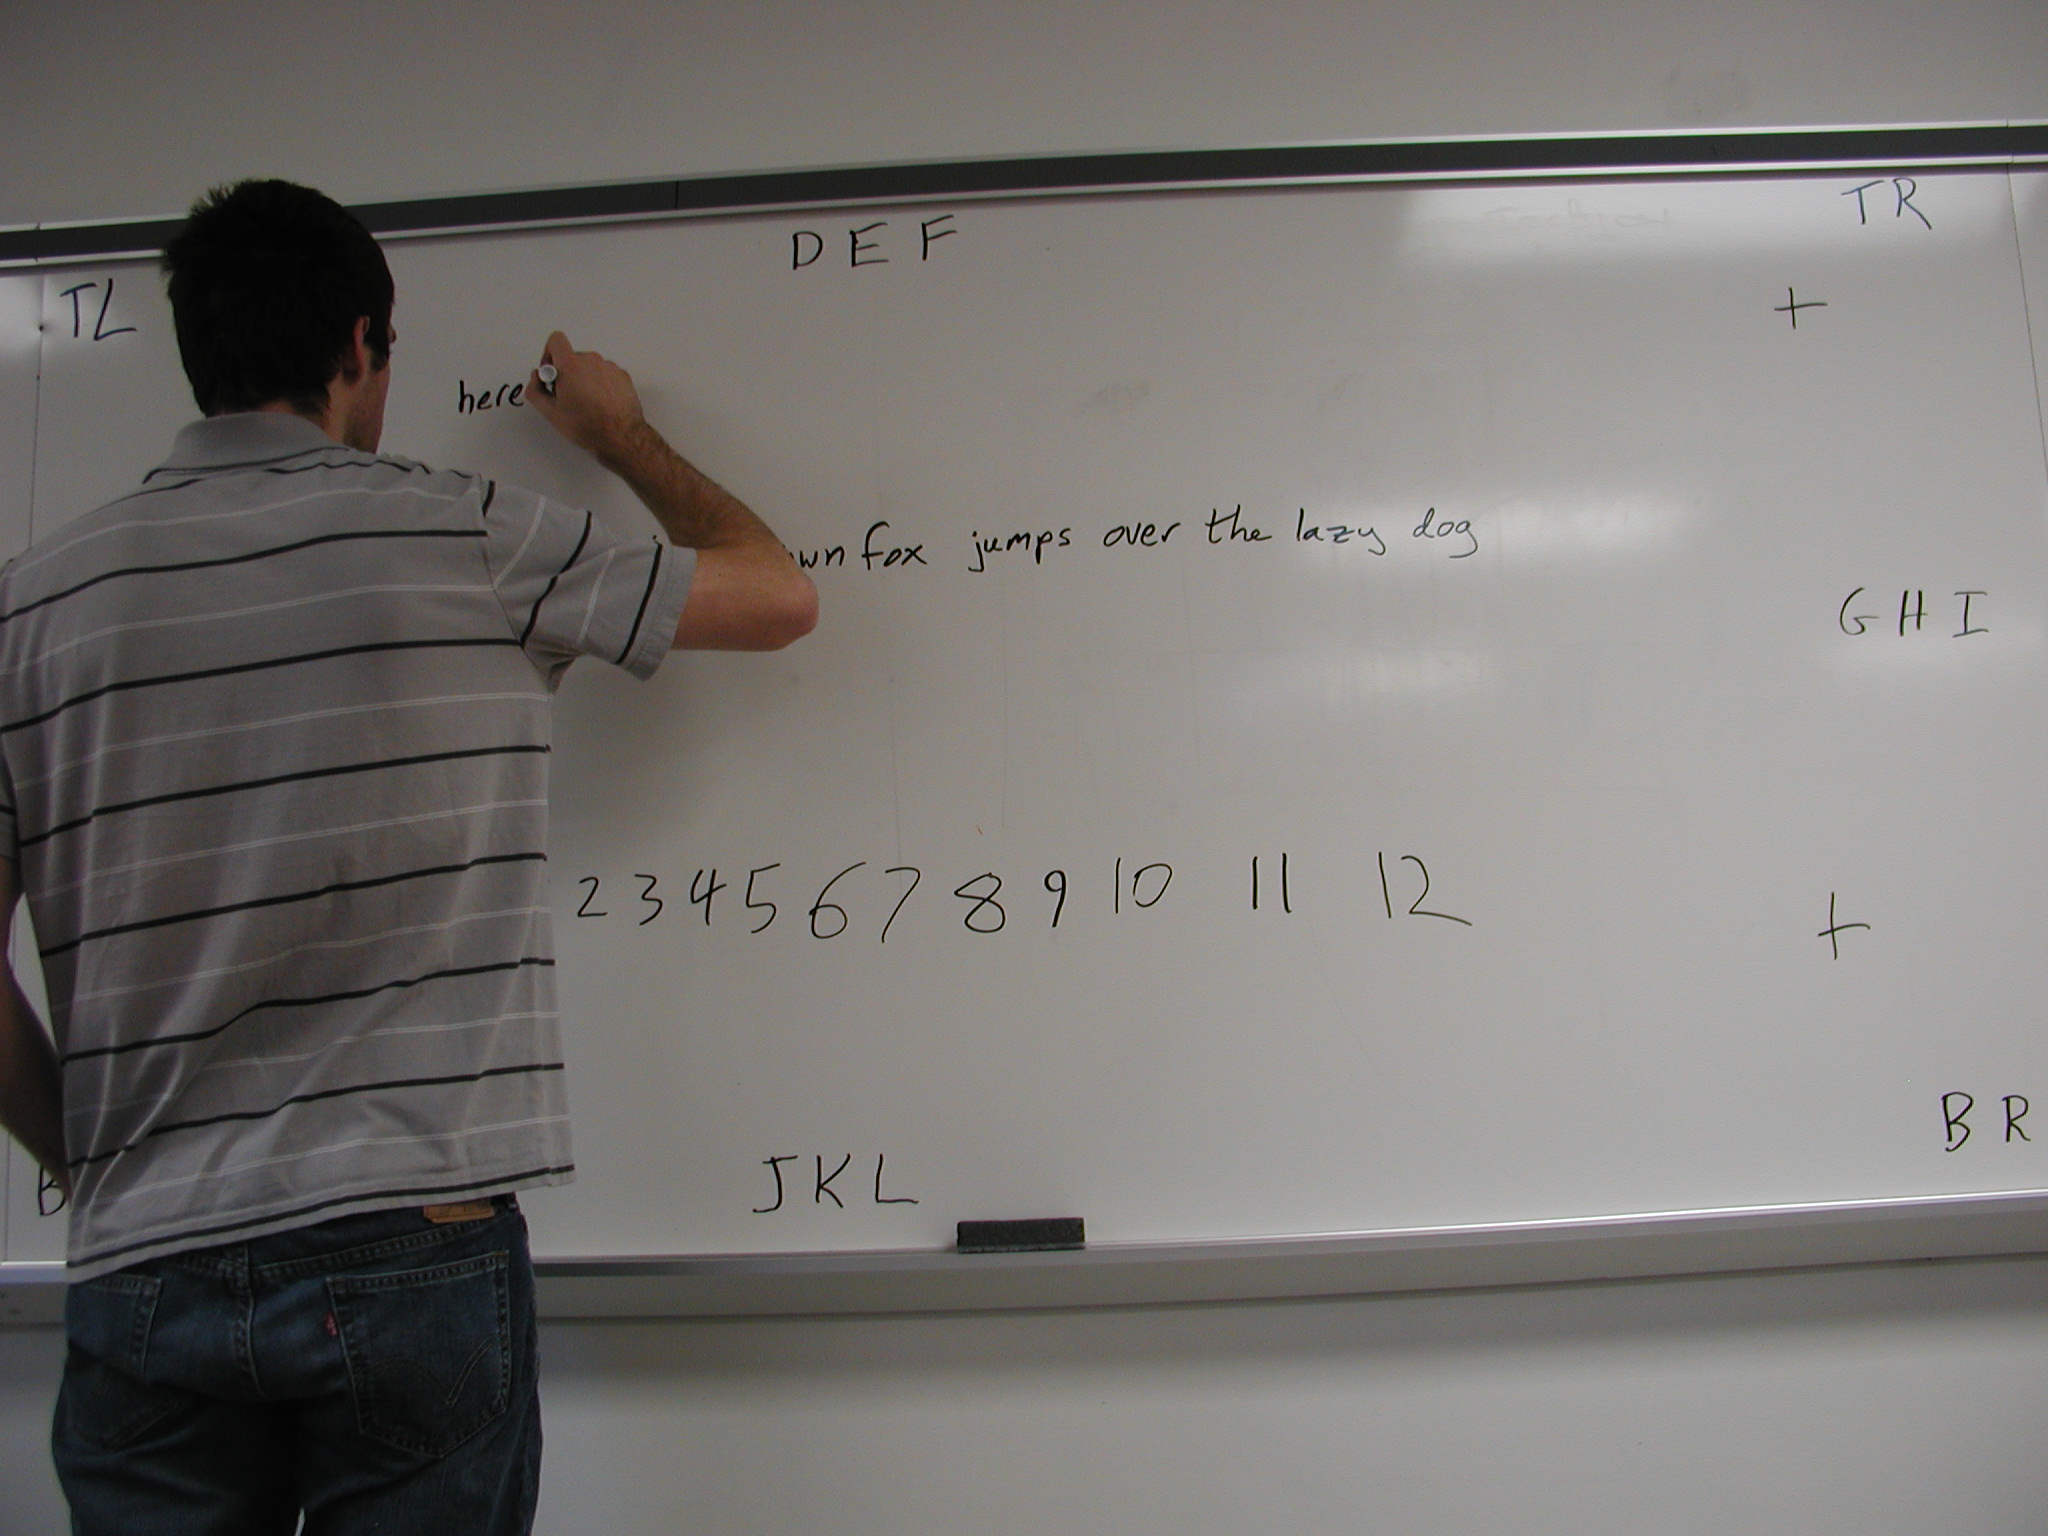 DEF
TR
TL
+
here
fox jumps over the lazy dog
GHI
2 3 4 5 6 7 8 9 10 11 12
+
BR
JKL